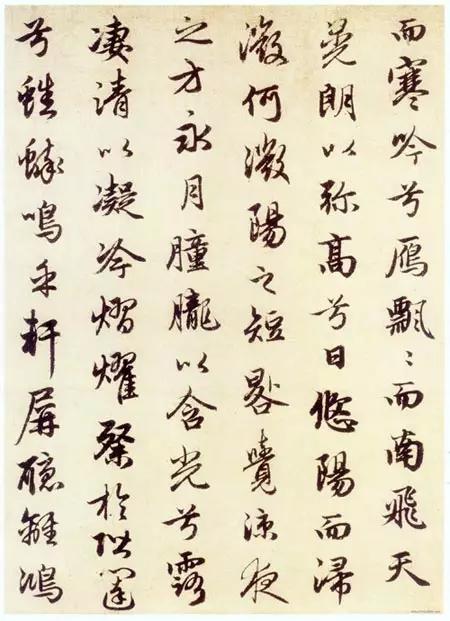 而寒吟兮鴈飄〻而南飛天
晃朗以弥高兮日悠陽而浸
微何微陽之短晷覺涼夜
之方永月朣朧以含光兮露
凄清以凝冷熠耀粲於階闥
兮蟋蟀鳴乎軒屏聽離鴻